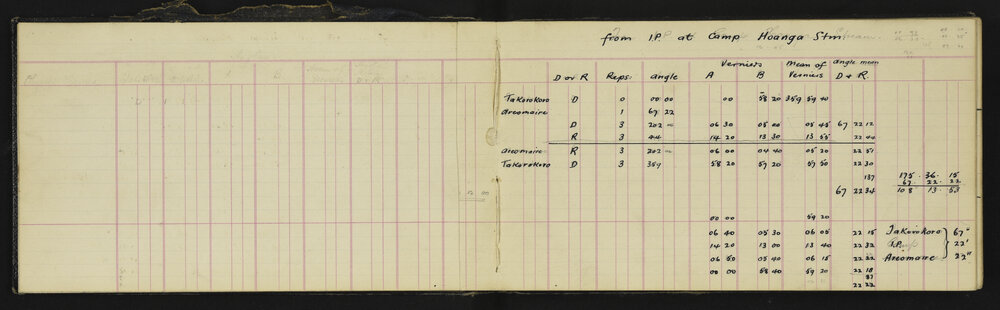 from I.P. at Camp Hoanga Stm.
Verniers Mean of angle mean
D or R Reps. angle A B Verniers D & R.
Takorokoro D 0 00 00 00 58 20 359 59 40
Areomaire 1 67 22
D 3 202 = 06 30 05 00 05 45 67 22 12
R 3 44 14 20 13 30 13 55 22 44
Areomaire R 3 202 = 06 00 04 40 05 20 22 51
Takorokoro D 3 359 58 20 57 20 57 50 22 30
137 175 . 36 . 15
67 . 22 . 22
67 22 34 108 13 53
00 00 59 20
06 40 05 30 06 05 22 15 Takorokoro } 67°
14 20 13 00 13 40 22 32 I.P. } 22'
06 50 05 40 06 15 22 32 Areomaire } 22"
00 00 58 40 59 20 22 18
87
22 22